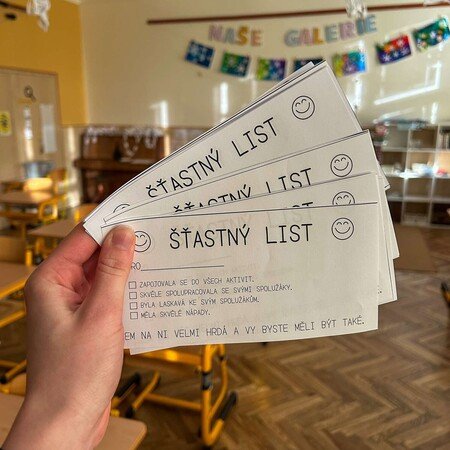 NAŠE GALERIE
ŠŤASTNÝ LIST
ŠŤASTNÝ LIST
ŠŤASTNÝ LIST
RO
ZAPOJOVALA SE DO VŠECH AKTIVIT.
SKVĚLE SPOLUPRACOVALA SE SVÝMI SPOLUŽÁKY.
BYLA LASKAVÁ KE SVÝM SPOLUŽÁKŮM.
MĚLA SKVĚLÉ NÁPADY.
EM NA NI VELMI HRDÁ A VY BYSTE MĚLI BÝT TAKÉ.